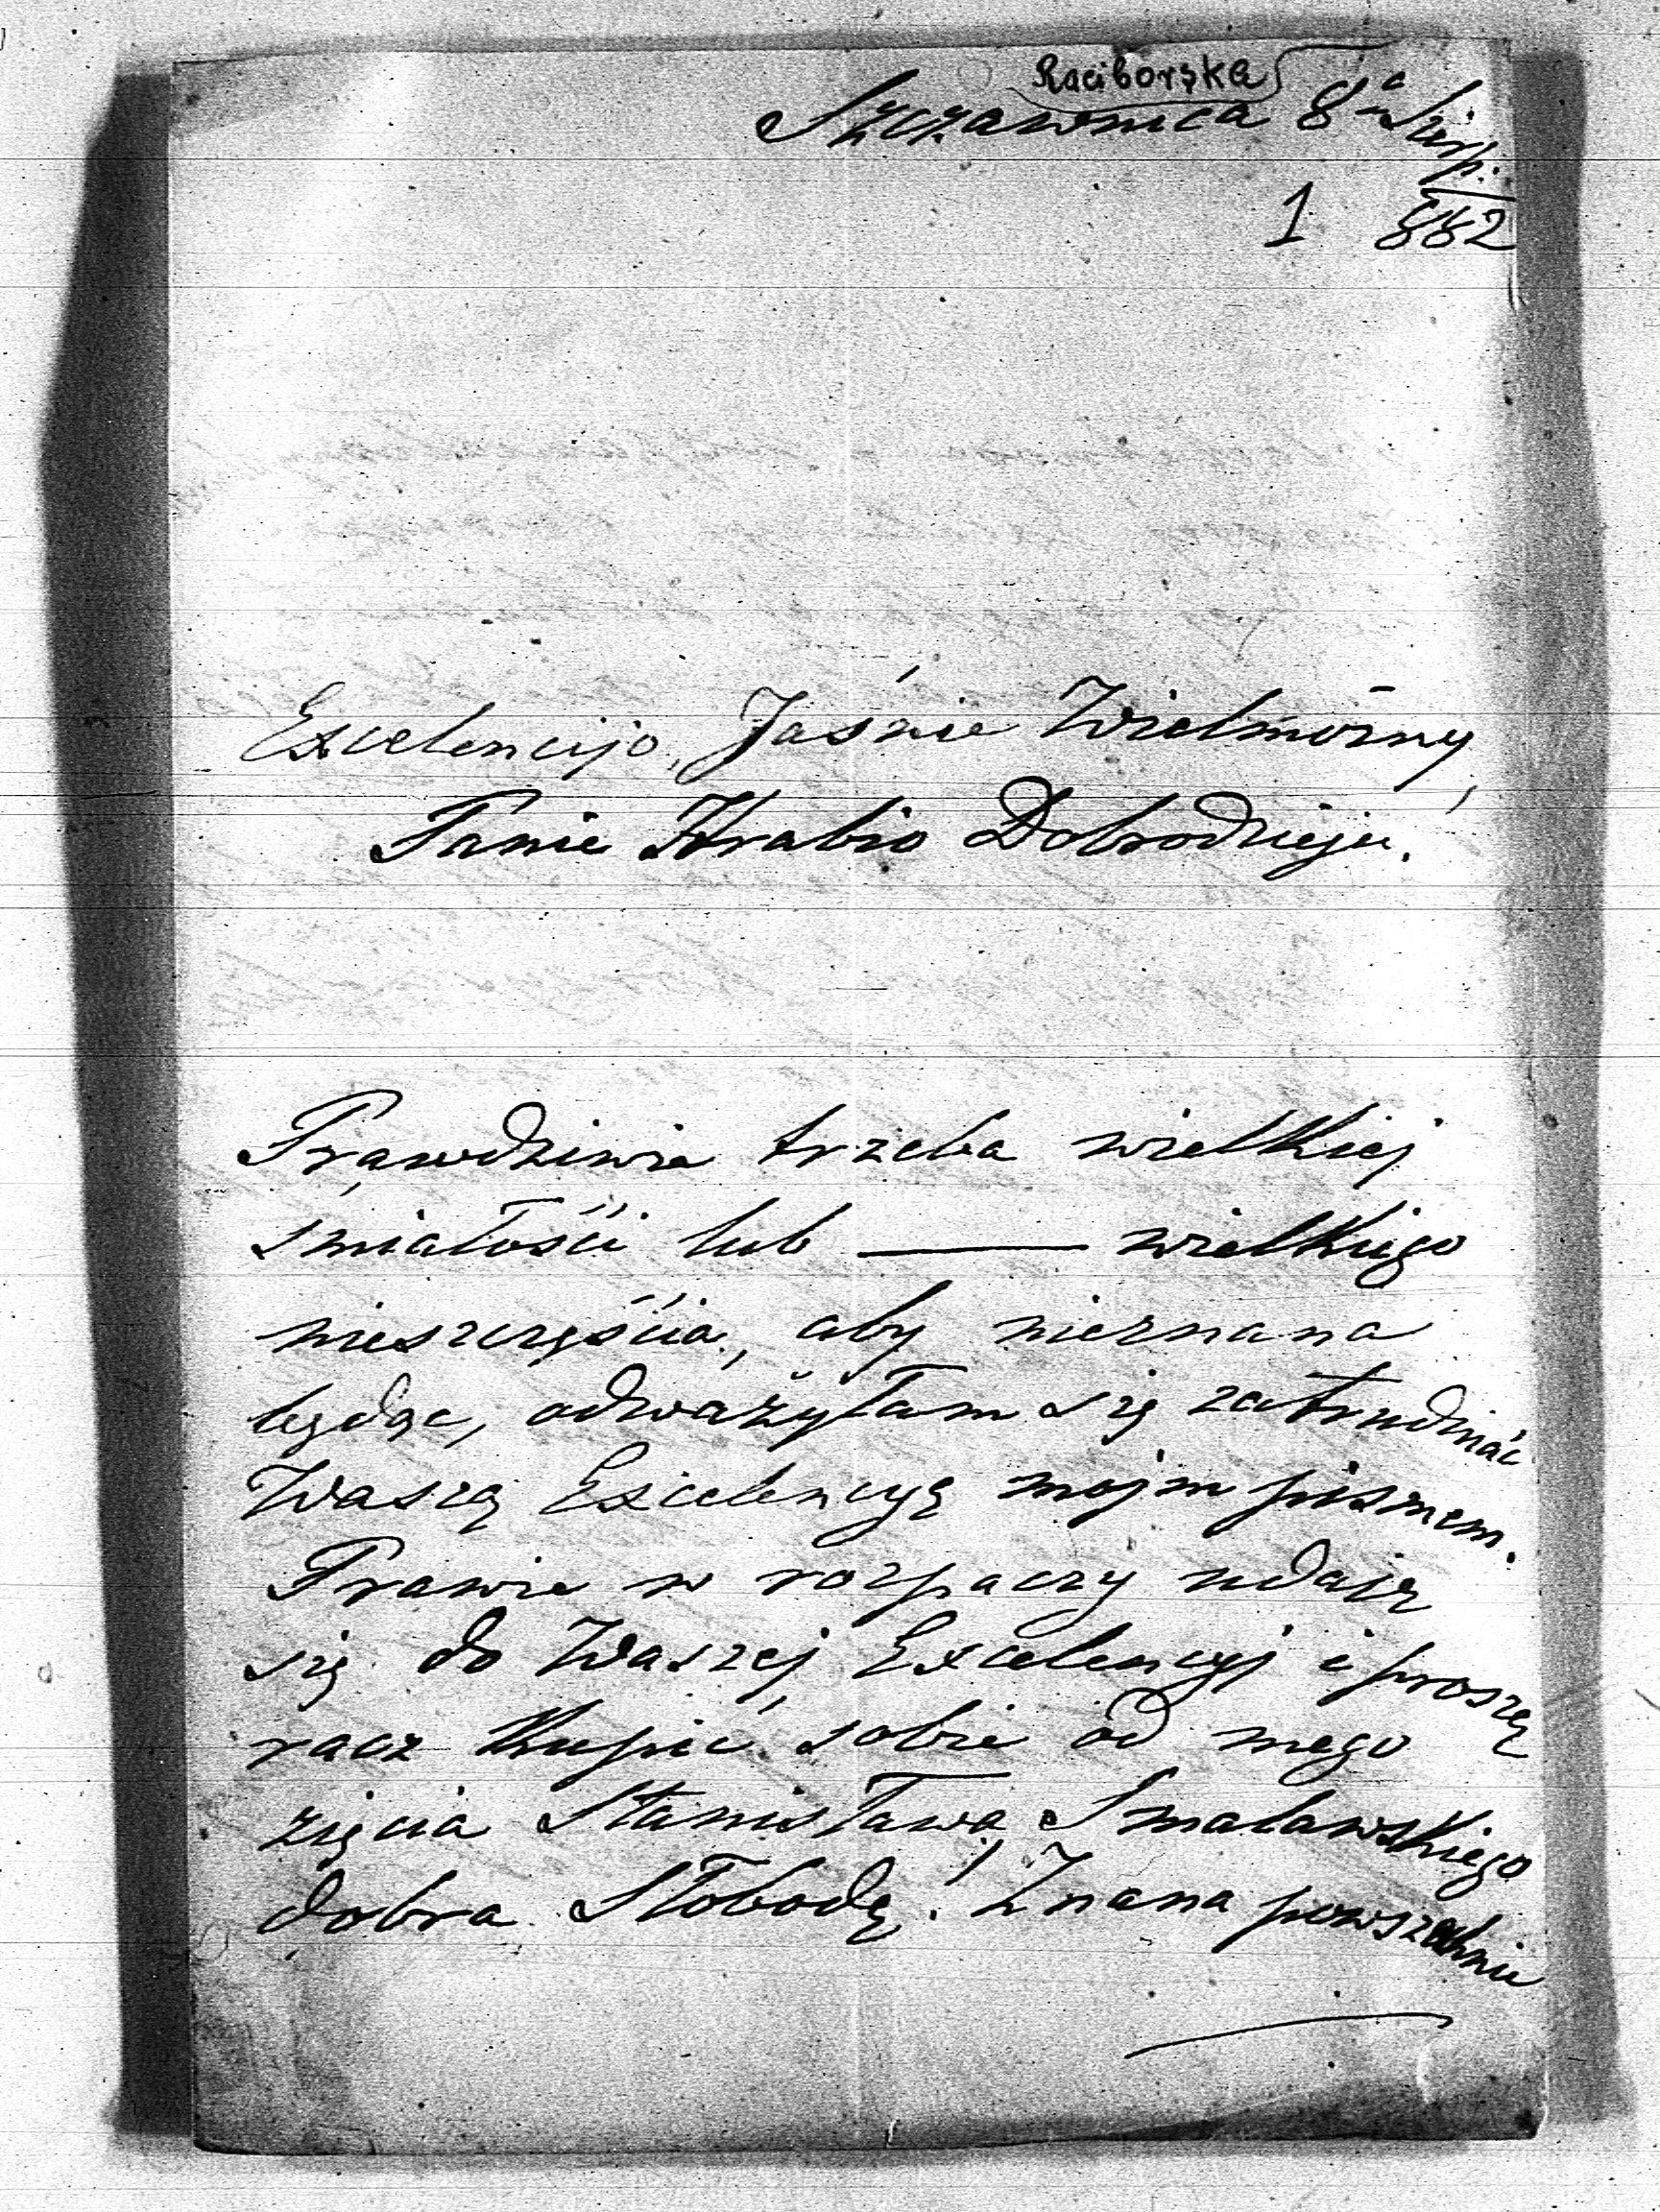 Raciborska
Szczawnica 8go Sierp.
1 882
Excelencijo, Jaśnie Wielmożny,
Panie Hrabio Dobrodzieju.
Prawdziwie trzeba wielkiej
śmiałości lub ——— wielkiego
nieszczęścia, aby nieznana
będąc, odważyłam się zatrudniać
Waszą Excelencyę mojm pismem.
Prawie w rozpaczy udaję
się do Waszej Excelencyj i proszę
racz kupić sobie od mego
zięcia Stanisława Smalawskiego
dobra Słobodę! Znana powszechnie